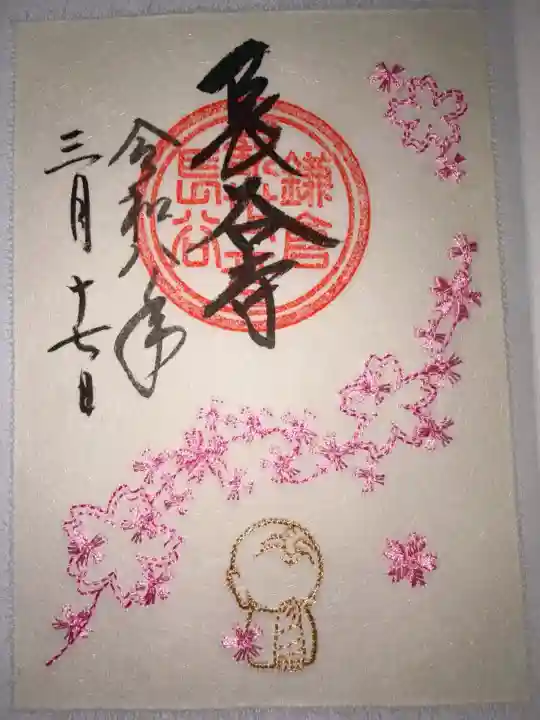 長谷寺
令和八年
三月十七日
鎌倉
長谷